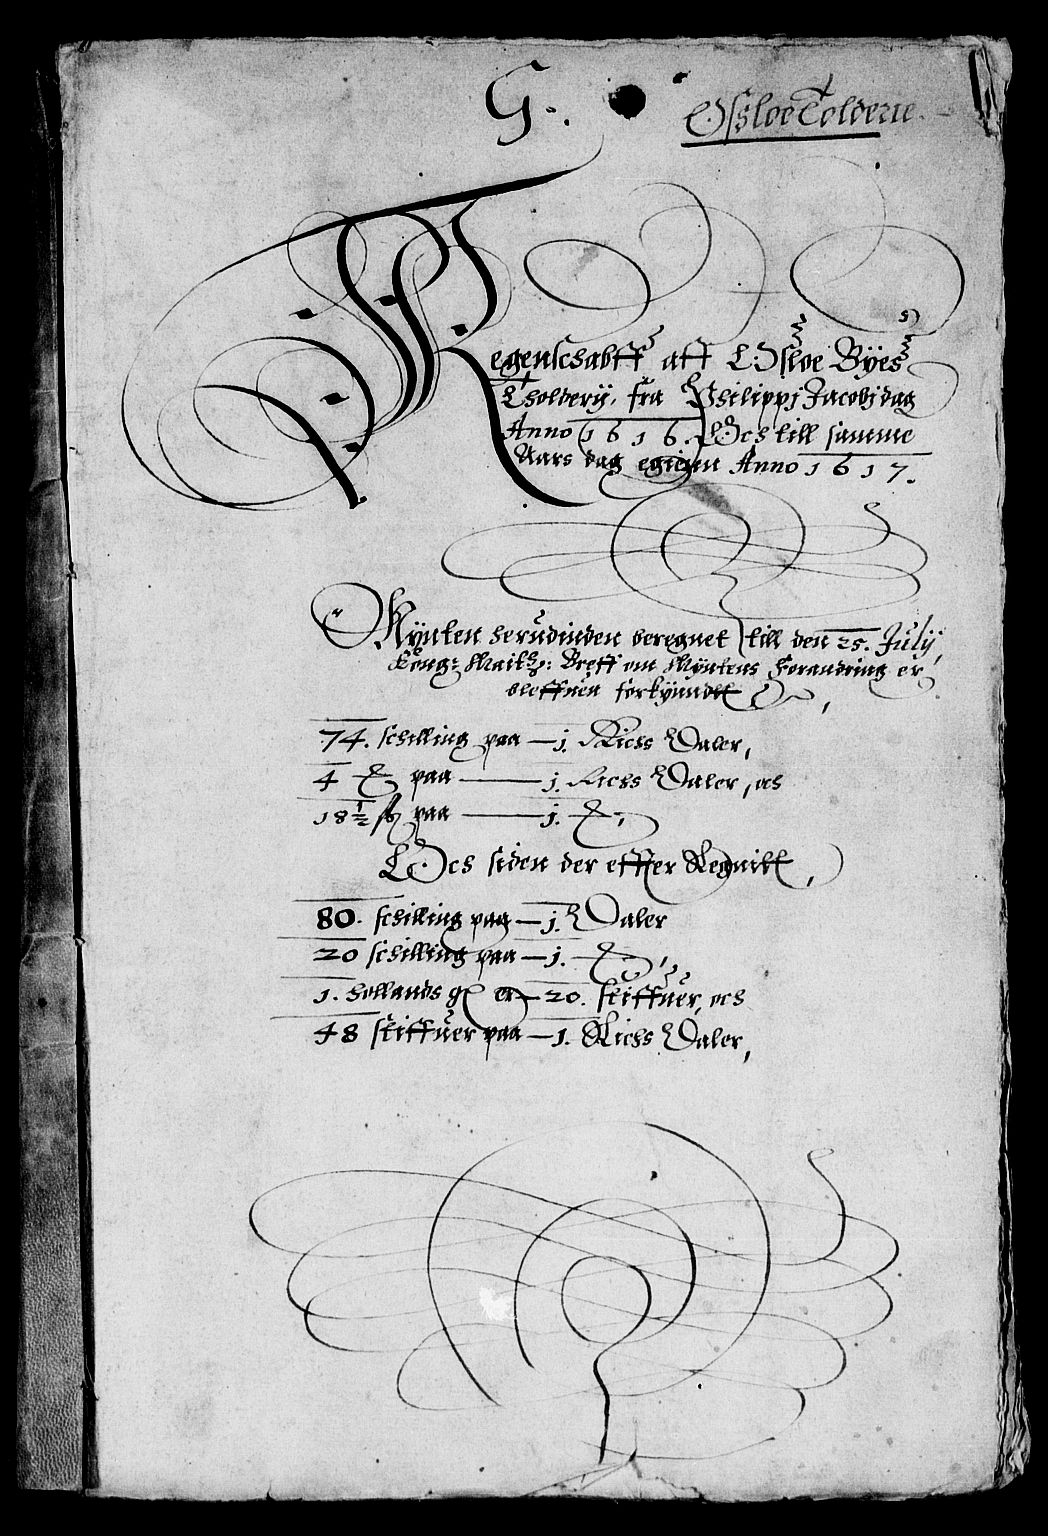 G.
Ossloe Tolderie.
Regenschabff aff Osloe Byes
Tholderij, fra Philippi Jacobj dag
Anno 1616. Och till samme
Aars dag egienn Anno 1617.
Mÿnten herudinden beregnet till den 25. Julij,
Kong: Maitz: Breff om Mÿntens Forandring er
bleffuen forkÿndtt,
74. schilling paa — j. Richs Daler,
4 paa — j. Richs Daler, och
18½ ß paa — j.
Och siden der effter Regnitt,
80. schilling paa — j. Daler
20 schilling paa — j.
1. hollands gl er — 20. stiffuer, och
48 stiffuer paa — 1. Richs Daler,